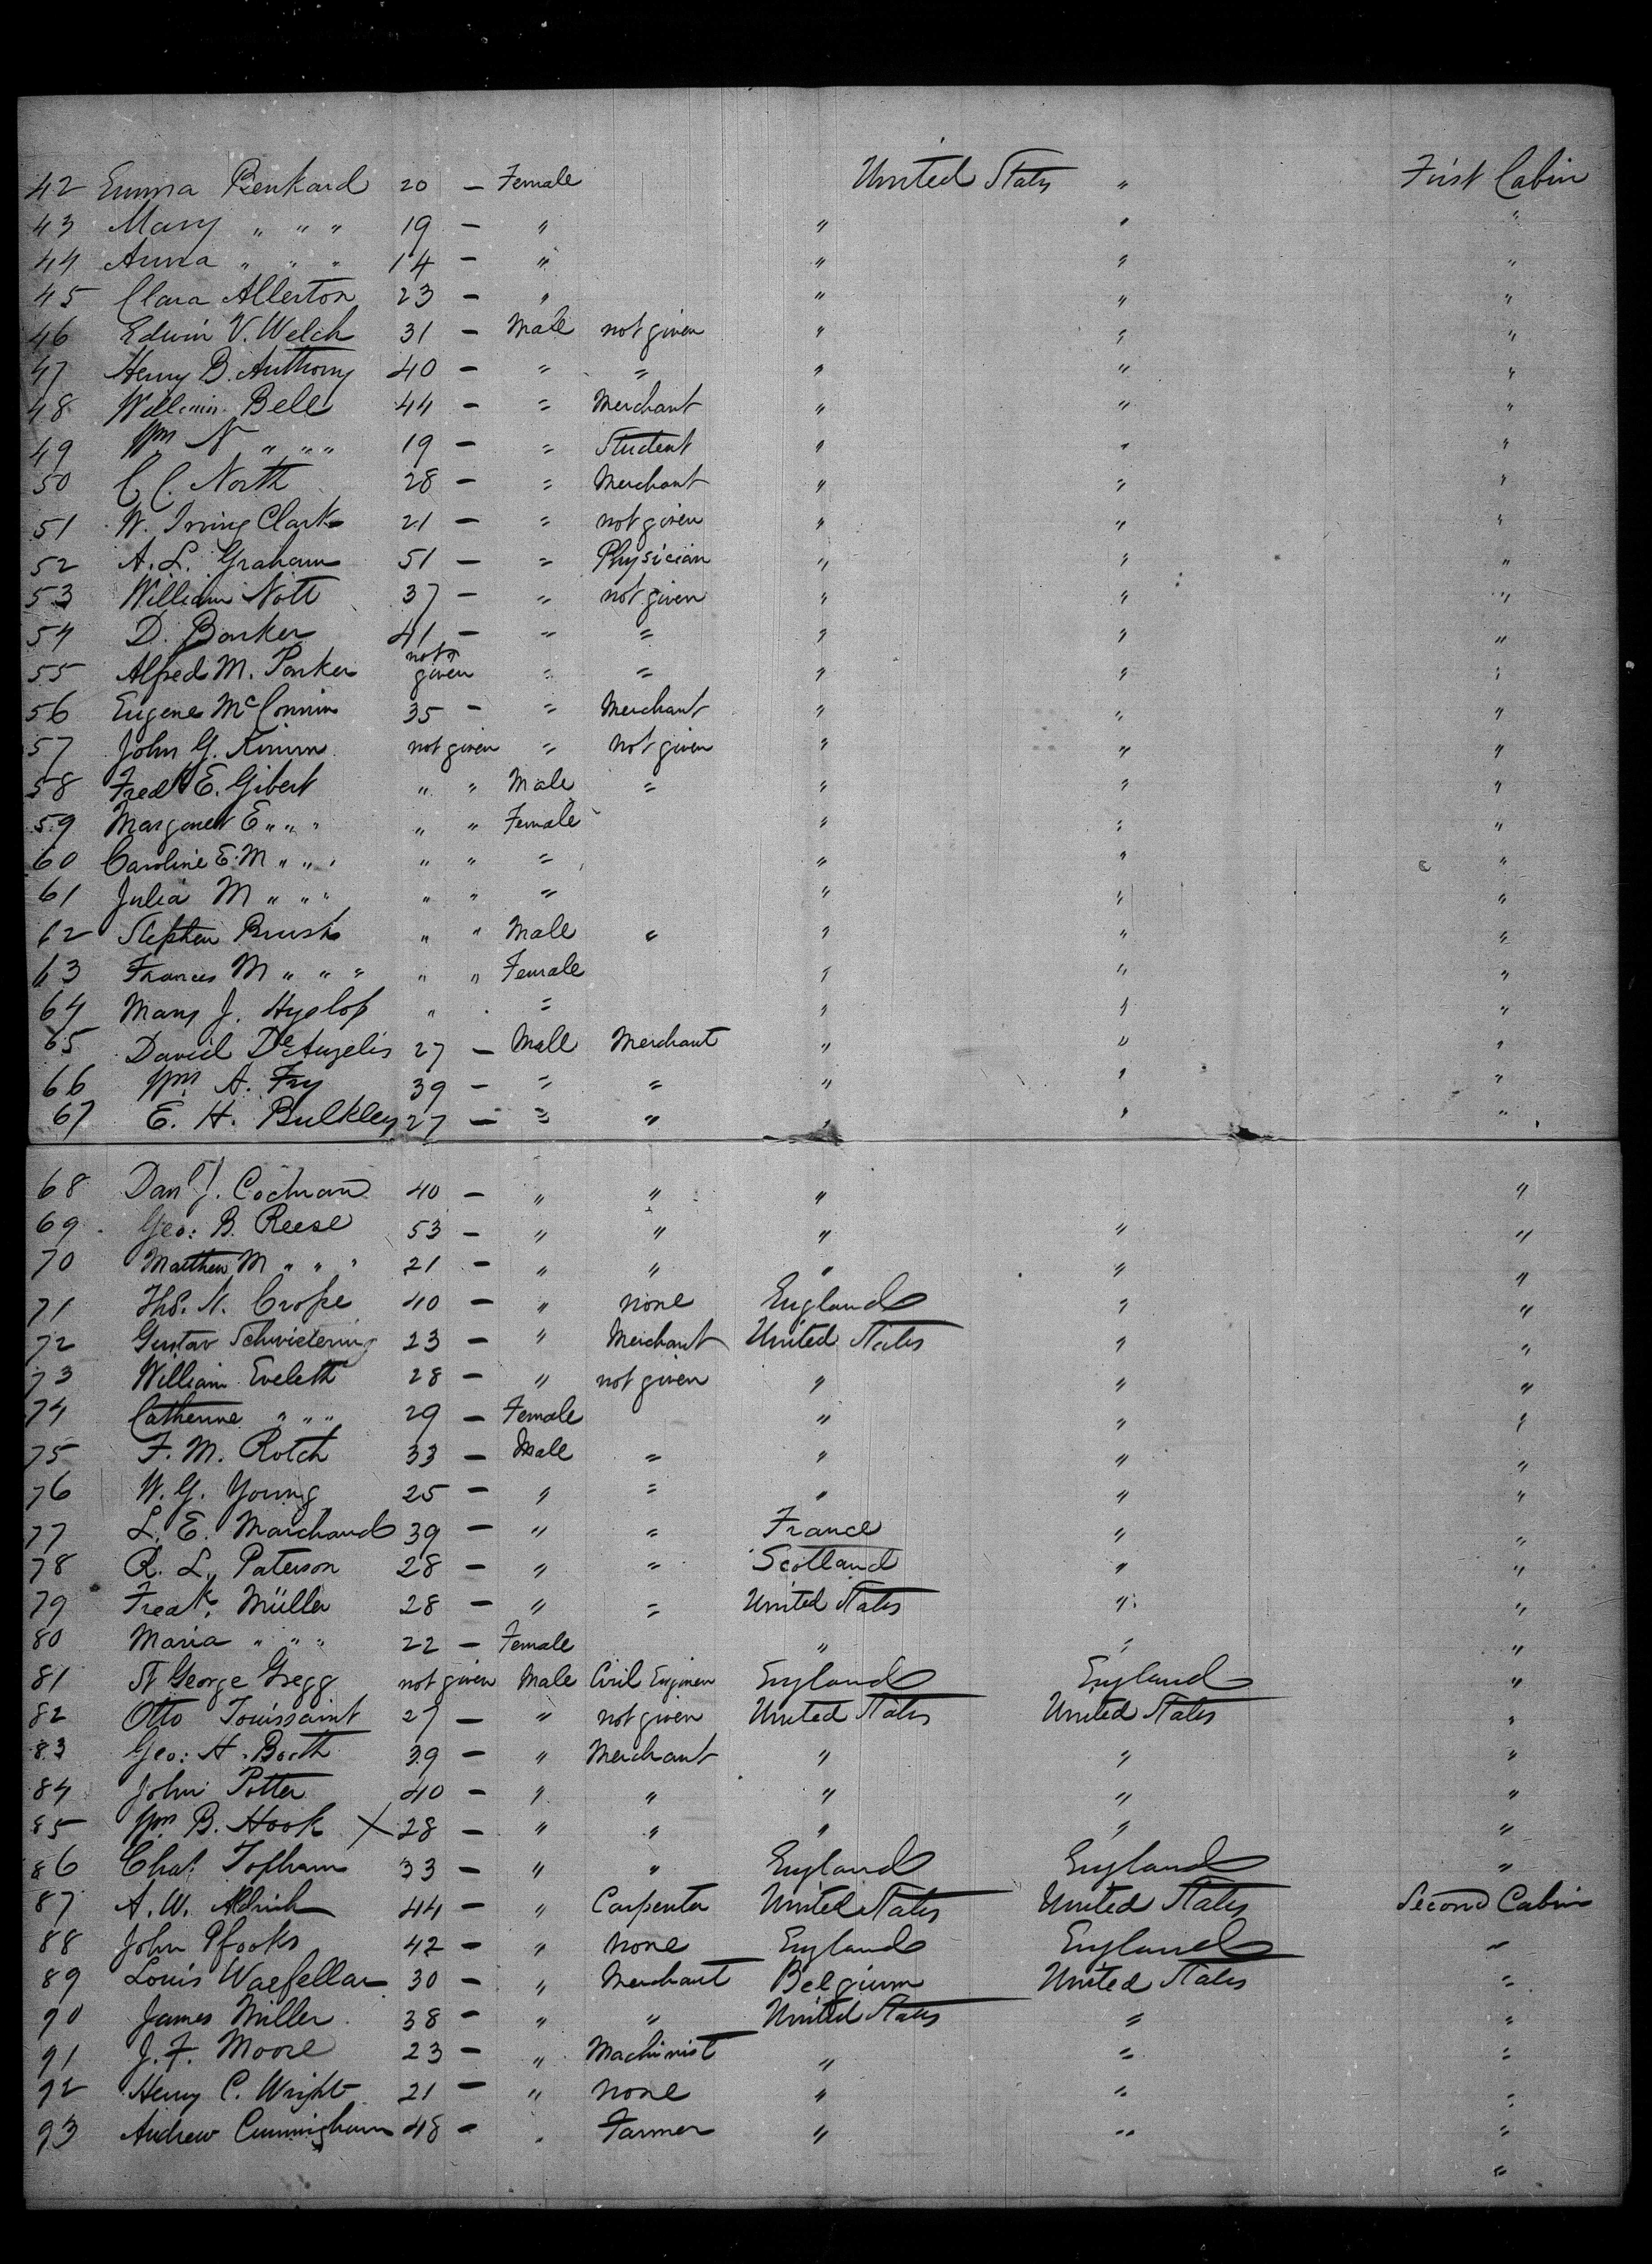 42 Emma Renkard 20 – Female United States " First Cabin
43 Mary " " " 19 – " " " "
44 Anna " " " 14 – " " " "
45 Clara Allerton 23 – " " " "
46 Edwin V. Welch 31 – Male not given " " "
47 Henry B. Anthony 40 – " " " " "
48 William Bell 44 – " Merchant " " "
49 Wm N " " " 19 – " Student " " "
50 C. C. North 28 – " Merchant " " "
51 W. Irving Clark 21 – " not given " " "
52 A. L. Graham 51 – " Physician " " "
53 William Nott 37 – " not given " " "
54 D. Barker 41 – " " " " "
55 Alfred M. Parker not given " " " " "
56 Eugene 35 – " Merchant " " "
57 John G. not given " not given " " "
58 Fredk E. Gibert " " Male " " " "
59 Margaret E " " " " " Female " " "
60 Caroline E. M " " " " " " " " "
61 Julia M " " " " " " " " "
62 Stephen Brush " " Male " " " "
63 Frances M " " " " " Female " " "
64 Mary J. Hyslop " " " " "
65 David De Angelis 27 – Male Merchant " " "
66 Wm A. Fry 39 – " " " " "
67 E. H. Bulkley 27 – " " " " "
68 Danl J. Cochran 40 – " " " "
69 Geo: B. Reese 53 – " " " " "
70 Matthew M " " " 21 – " " " " "
71 Ths. N. 40 – " none England " "
72 Gustav Schwietering 23 – " Merchant United States " "
73 William Eveleth 28 – " not given " " "
74 Catherine " " " 29 – Female " " "
75 F. M. Rotch 33 – Male " " " "
76 W. G. Young 25 – " " " " "
77 L. E. Marchand 39 – " " France " "
78 R. L. Paterson 28 – " " Scotland " "
79 Fredk. Müller 28 – " " United States " "
80 Maria " " " 22 – Female " " "
81 St George Gregg not given Male Civil Engineer England England "
82 Otto Touissaint 27 – " not given United States United States "
83 Geo: H. Booth 39 – " Merchant " " "
84 John Potter 40 – " " " " "
85 Wm B. Hook X 28 – " " " " "
86 Chas. Topham 33 – " " England England "
87 A. W. Aldrich 44 – " Carpenter United States United States Second Cabin
88 John Pfooks 42 – " none England England "
89 Louis Waefellar 30 – " Merchant Belgium United States "
90 James Miller 38 – " " United States " "
91 J. F. Moore 23 – " Machinist " " "
92 Henry C. Wright 21 – " none " " "
93 Andrew Cunningham 48 – " Farmer " " "
"